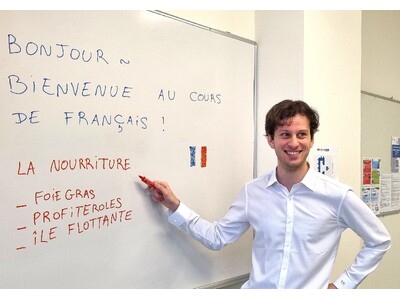 BONJOUR ~
BIENVENUE AU COURS
DE FRANÇAIS !
LA NOURRITURE
– FOIE GRAS
– PROFITEROLES
– ÎLE FLOTTANTE
–